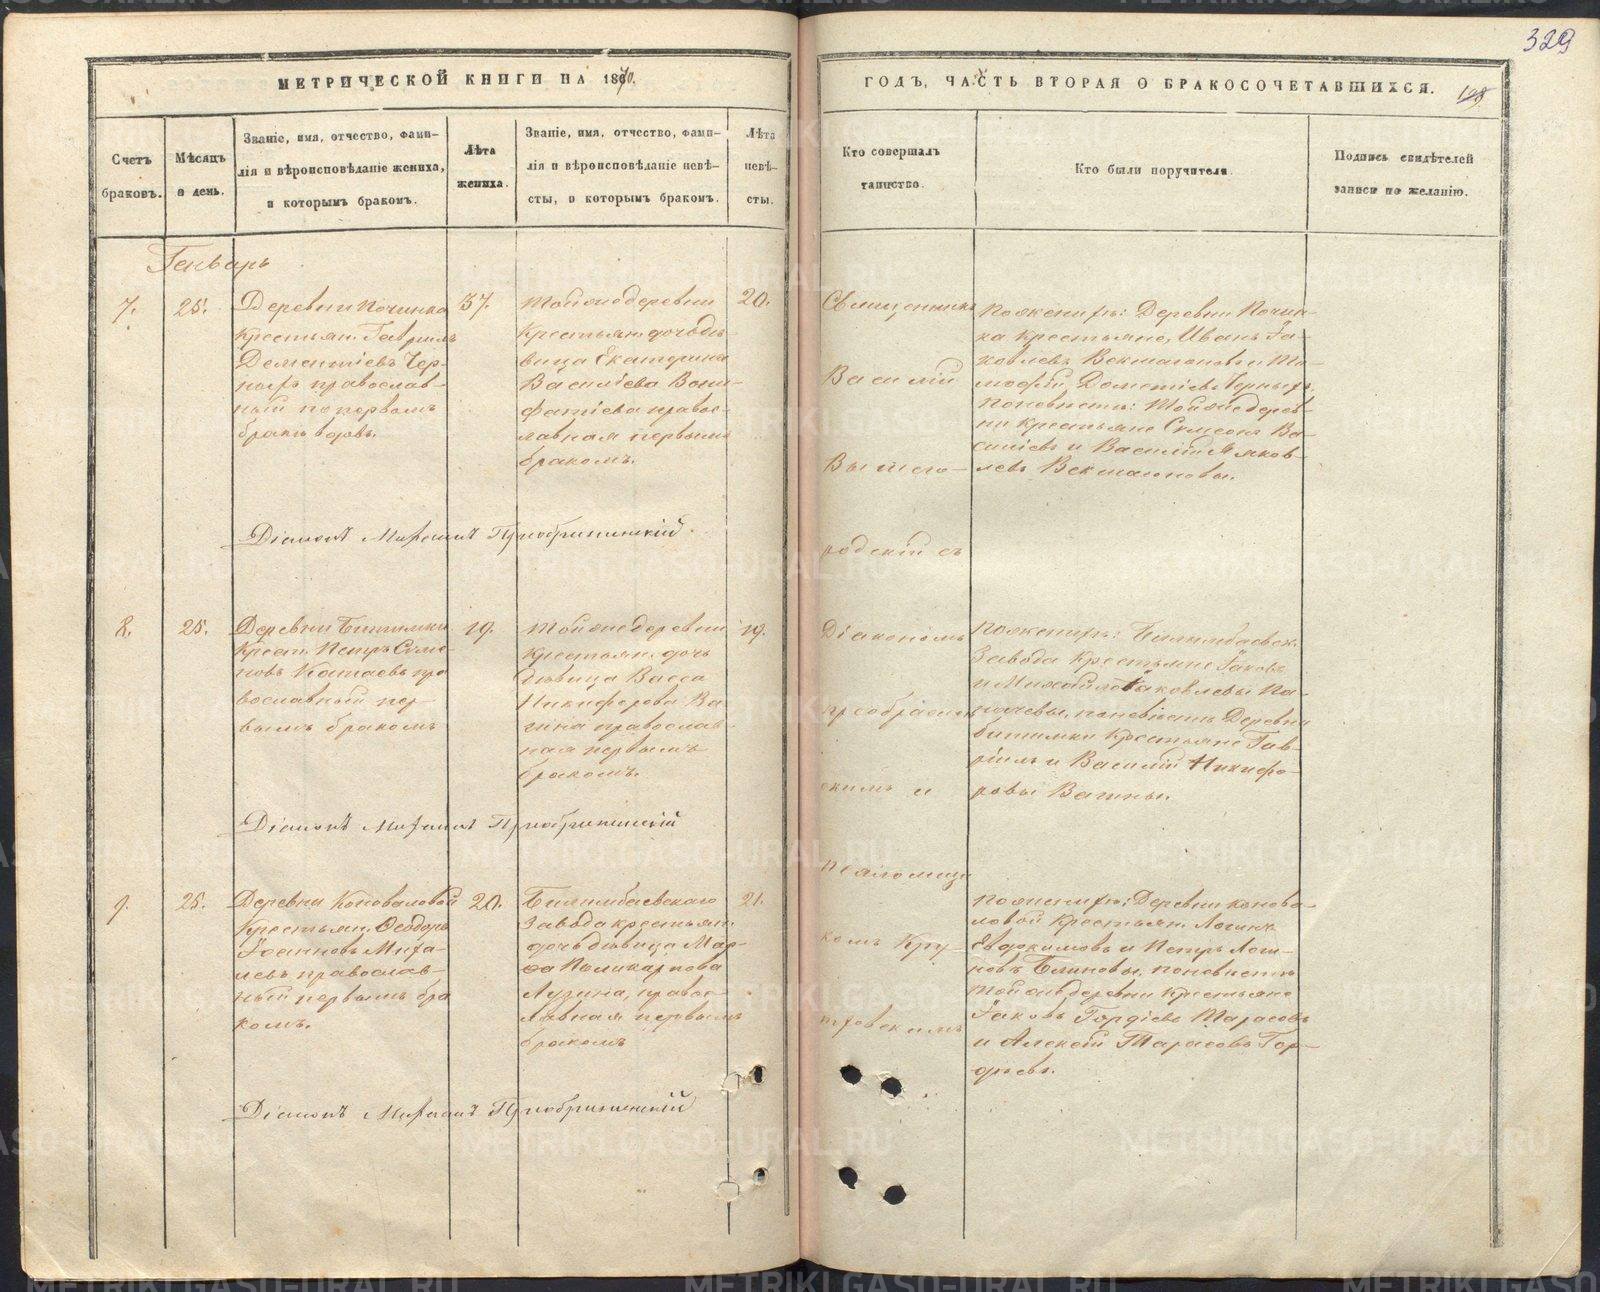 329
МЕТРИЧЕСКОЙ КНИГИ НА 1870.
ГОДЪ, ЧАСТЬ ВТОРАЯ О БРАКОСОЧЕТАВШИХСЯ.
Счетъ
браковъ.
Мѣсяцъ
и день.
Званіе, имя, отчество, фами-
лія и вѣроисповѣданіе жениха,
и которымъ бракомъ.
Лѣта
жениха.
Званіе, имя, отчество, фами-
лія и вѣроисповѣданіе невѣ-
сты, и которымъ бракомъ.
Лѣта
невѣ-
сты.
Кто совершалъ
таинство.
Кто были поручители.
Подпись свидѣтелей
записи по желанію.
Генварь
7.
25.
Деревни Починка
Крестьян. Гавриилъ
Дементіевъ Чер-
ныхъ православ-
ный по первомъ
бракѣ вдовъ.
37.
Тойже деревни
крестьян. дочь дѣ-
вица Екатерина
Васильева Вони-
фатіева правос-
лавная первымъ
бракомъ.
20.
Поженихѣ: Деревни Почин-
ка крестьяне, Иванъ Іа-
ковлевъ Векшеговъ и Ти-
мофей Дометіевъ Черныхъ,
поневѣстѣ: Тойже дерев-
ни крестьяне Симеонъ Ва-
силіевъ и Василій Яков-
левъ
Діаконъ Михаилъ Преображенскій
8.
25.
Деревни Битимки
Крест. Петръ Симе-
новъ Катаевъ пра
вославный пер-
вымъ бракомъ
19.
Тойже деревни
крестьян. дочь
дѣвица Васса
Никифорова Ва-
гина православ-
ная первымъ
бракомъ.
19.
Поженихѣ: Билимбаевск.
Завода крестьяне Іаковъ
и Михайло Іаковлевы
поневѣстѣ Деревни
битимки Крестьяне Гав-
ріилъ и Василій Никифо-
ровы Вагины.
Діаконъ Михаилъ Преображенскій
9.
25.
Деревни Коноваловой
Крестьян. Ѳеодоръ
Іоанновъ Миха-
левъ православ-
ный первымъ бра
комъ.
20.
Билимбаевскаго
Завода крестьян.
дочь дѣвица Мар-
ѳа Поликарпова
Лузина, правос-
лавная первымъ
бракомъ
21.
поженихѣ: Деревни конова-
ловой крестьян. Логинъ
Евдокимовъ и Петръ Логи-
новъ Блиновы, поневѣстѣ
той жъ деревни крестьяне
Іаковъ Гордіевъ Тарасовъ
и Алексѣй Тарасовъ Гор-
діевъ.
Діаконъ Михаилъ Преображенскій
Священникъ
Василій
Вытего-
родскій съ
Діакономъ
преображен
скимъ и
псаломщи
комъ